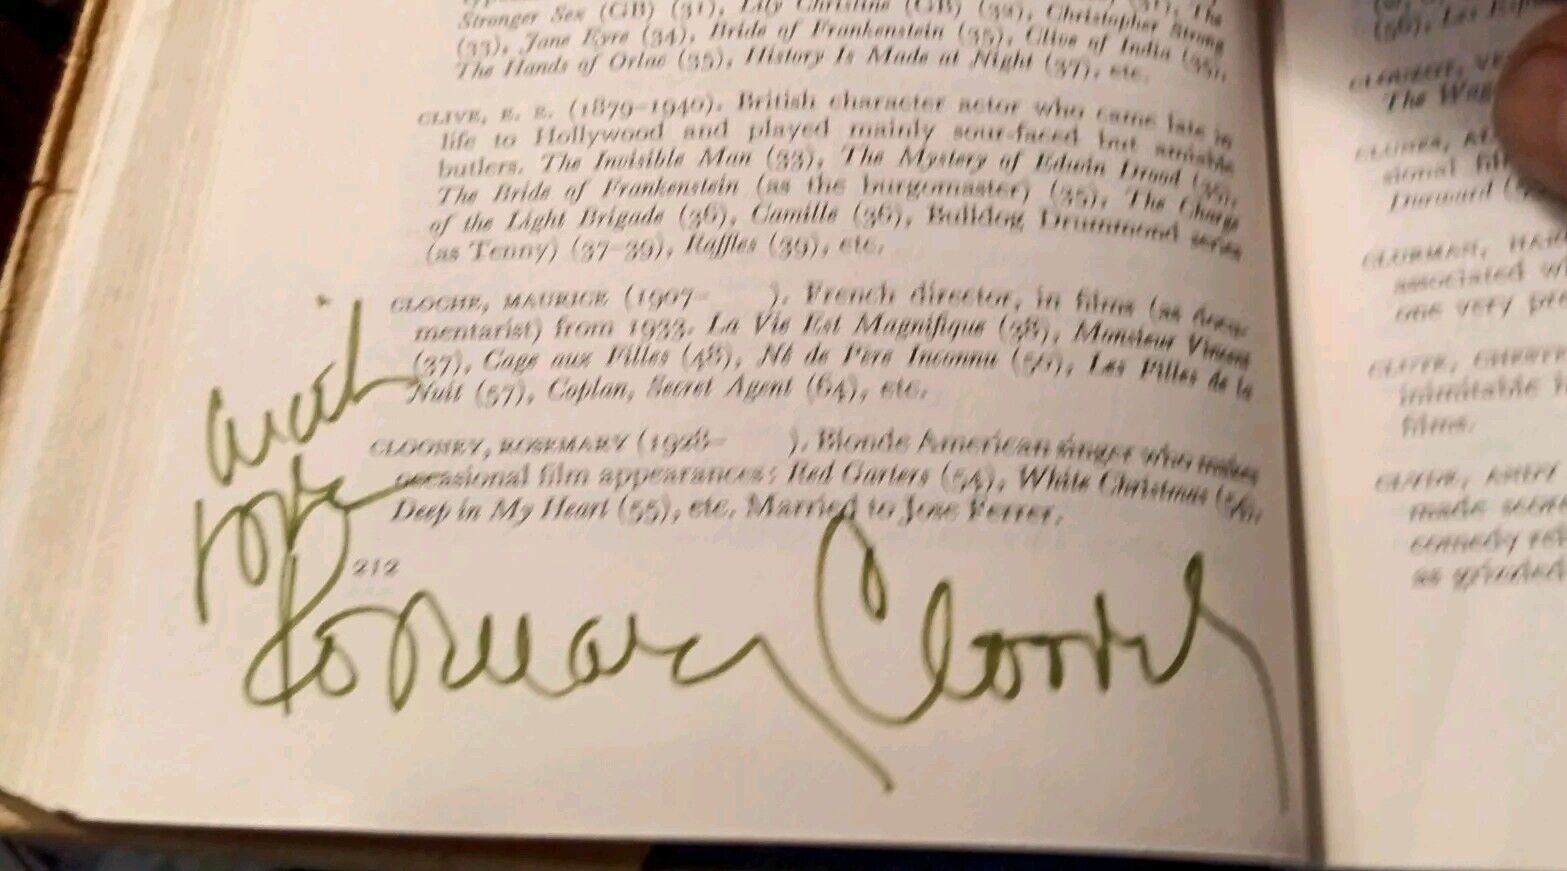 Stronger Sex (GB) (31), Lily Christine (GB) (32), Christopher Strong
(33), Jane Eyre (34), Bride of Frankenstein (35), Clive of India (35),
The Hands of Orlac (35), History Is Made at Night (37), etc.
CLIVE, E. E. (1879–1940). British character actor who came late in
life to Hollywood and played mainly sour-faced but amiable
butlers. The Invisible Man (33), The Mystery of Edwin Drood
The Bride of Frankenstein (as the burgomaster) (35), The Charge
of the Light Brigade (36), Camille (36), Bulldog Drummond series
(as Tenny) (37–39), Raffles (39), etc.
CLOCHE, MAURICE (1907– ). French director, in films (as docu-
mentarist) from 1933. La Vie Est Magnifique (38), Monsieur Vincent
(37), Cage aux Filles (48), Né de Père Inconnu (50), Les Filles de la
Nuit (57), Coplan, Secret Agent (64), etc.
CLOONEY, ROSEMARY (1928– ). Blonde American singer who makes
occasional film appearances: Red Garters (54), White Christmas (54),
Deep in My Heart (55), etc. Married to Jose Ferrer.
with
love
212
Rosemary Clooney
The
CLURMAN,
associated
one very
inimitable
films.
made
comedy
as